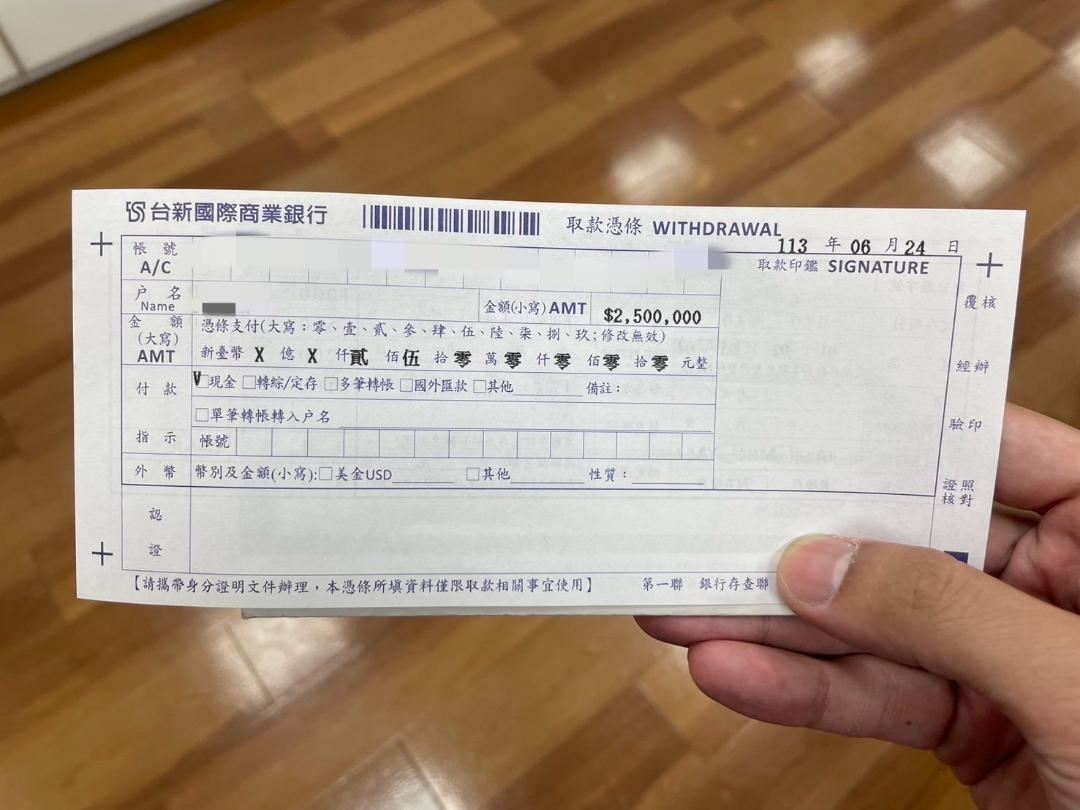 台新國際商業銀行 取款憑條 WITHDRAWAL
113 年 06 月 24 日
帳號 A/C 取款印鑑 SIGNATURE
戶名 Name 金額(小寫)AMT $2,500,000
金額(大寫) AMT 憑條支付(大寫：零、壹、貳、參、肆、伍、陸、柒、捌、玖；修改無效)
新臺幣 X 億 X 仟 貳 佰 伍 拾 零 萬 零 仟 零 佰 零 拾 零 元整
付款 V 現金 □轉綜/定存 □多筆轉帳 □國外匯款 □其他 備註：
□單筆轉帳轉入戶名
指示 帳號
外幣 幣別及金額(小寫):□美金USD □其他 性質：
認證
覆核
經辦
驗印
證照核對
【請攜帶身分證明文件辦理，本憑條所填資料僅限取款相關事宜使用】 第一聯 銀行存查聯